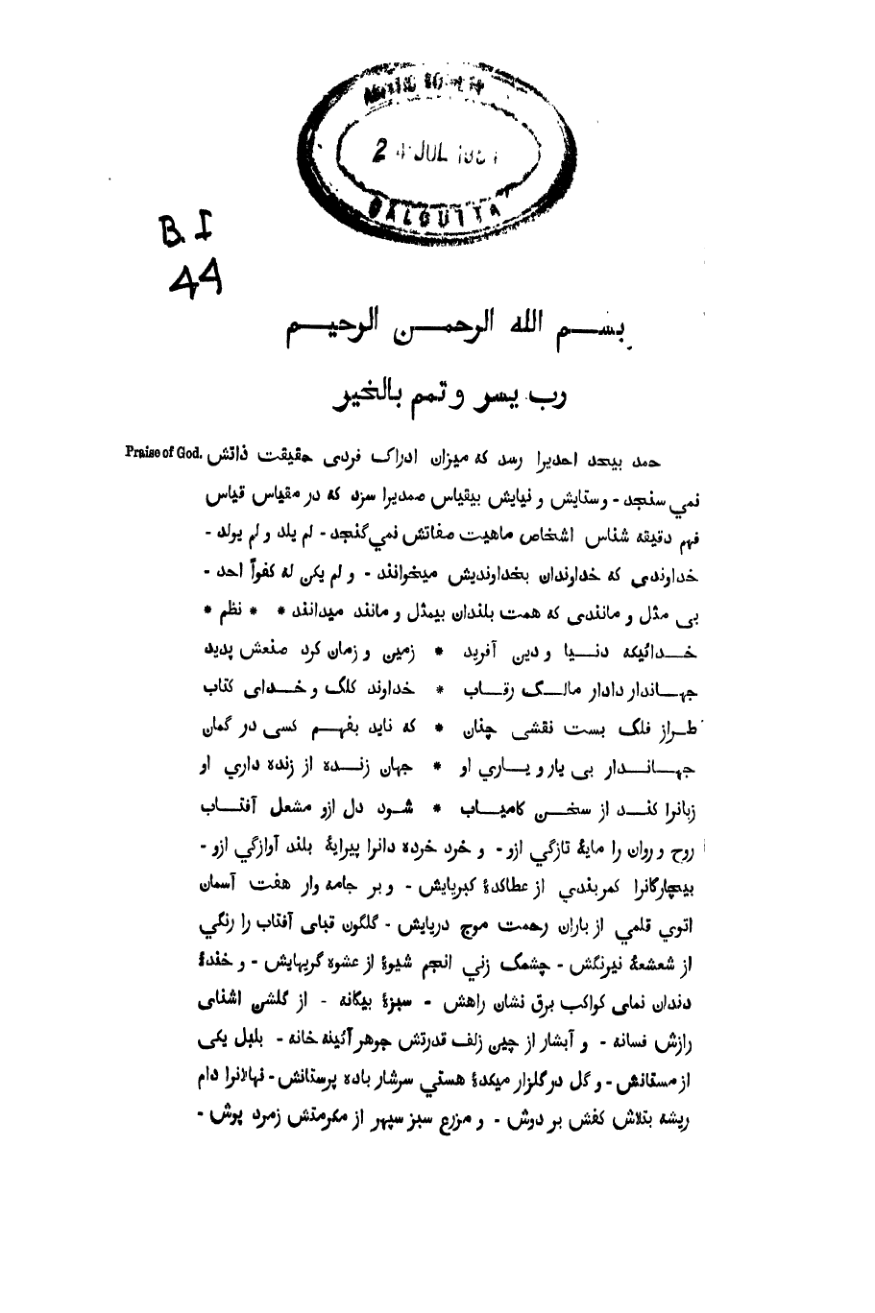 2 4 JUL
CALCUTTA
B. I
44
بســم الله الرحمــن الرحيــم
رب يسر و تمم بالخير
Praise of God.
حمد بيحد احديرا رسد كه ميزان ادراک فردى حقيقت ذاتش
نمي سنجد - وستايش و نيايش بيقياس صمديرا سزد كه در مقياس قياس
فهم دقيقه شناس اشخاص ماهيت صفاتش نمي گنجد - لم يلد و لم يولد -
خداوندى كه خداوندان بخداونديش ميخوانند - و لم يكن له كفواً احد -
بى مثل و مانندى كه همت بلندان بيمثل و مانند ميدانند * * نظم *
خــدائيكه دنــيا و دين آفريد * زمين و زمان كرد صنعش پديد
جهــاندار دادار مالــک رقــاب * خداوند كلک و خــداى كتاب
طــراز فلک بست نقشى چنان * كه نايد بفهــم كسى در گمان
جهــانــدار بى يار و يــاري او * جهان زنــده از زنده داري او
زبانرا كنــد از سخــن كاميــاب * شــود دل ازو مشعل آفتــاب
روح و روان را مايۀ تازگي ازو - و خرد خرده دانرا پيرايۀ بلند آوازگي ازو -
بيچارگانرا كمربندي از عطاكدۀ كبريايش - و بر جامه وار هفت آسمان
اتوي قلمي از باران رحمت موج دريايش - گلگون قباى آفتاب را رنگي
از شعشعۀ نيرنگش - چشمک زني انجم شيوۀ از عشوه گريهايش - و خندۀ
دندان نماى كواكب برق نشان راهش - سبزۀ بيگانه - از گلشن اشناى
رازش فسانه - و آبشار از چين زلف قدرتش جوهر آئينه خانه - بلبل يكى
از مستانش - و گل در گلزار ميكدۀ هستي سرشار باده پرستانش - نهالانرا دام
ريشه بتلاش كفش بر دوش - و مزرع سبز سپهر از مكرمتش زمرد پوش -